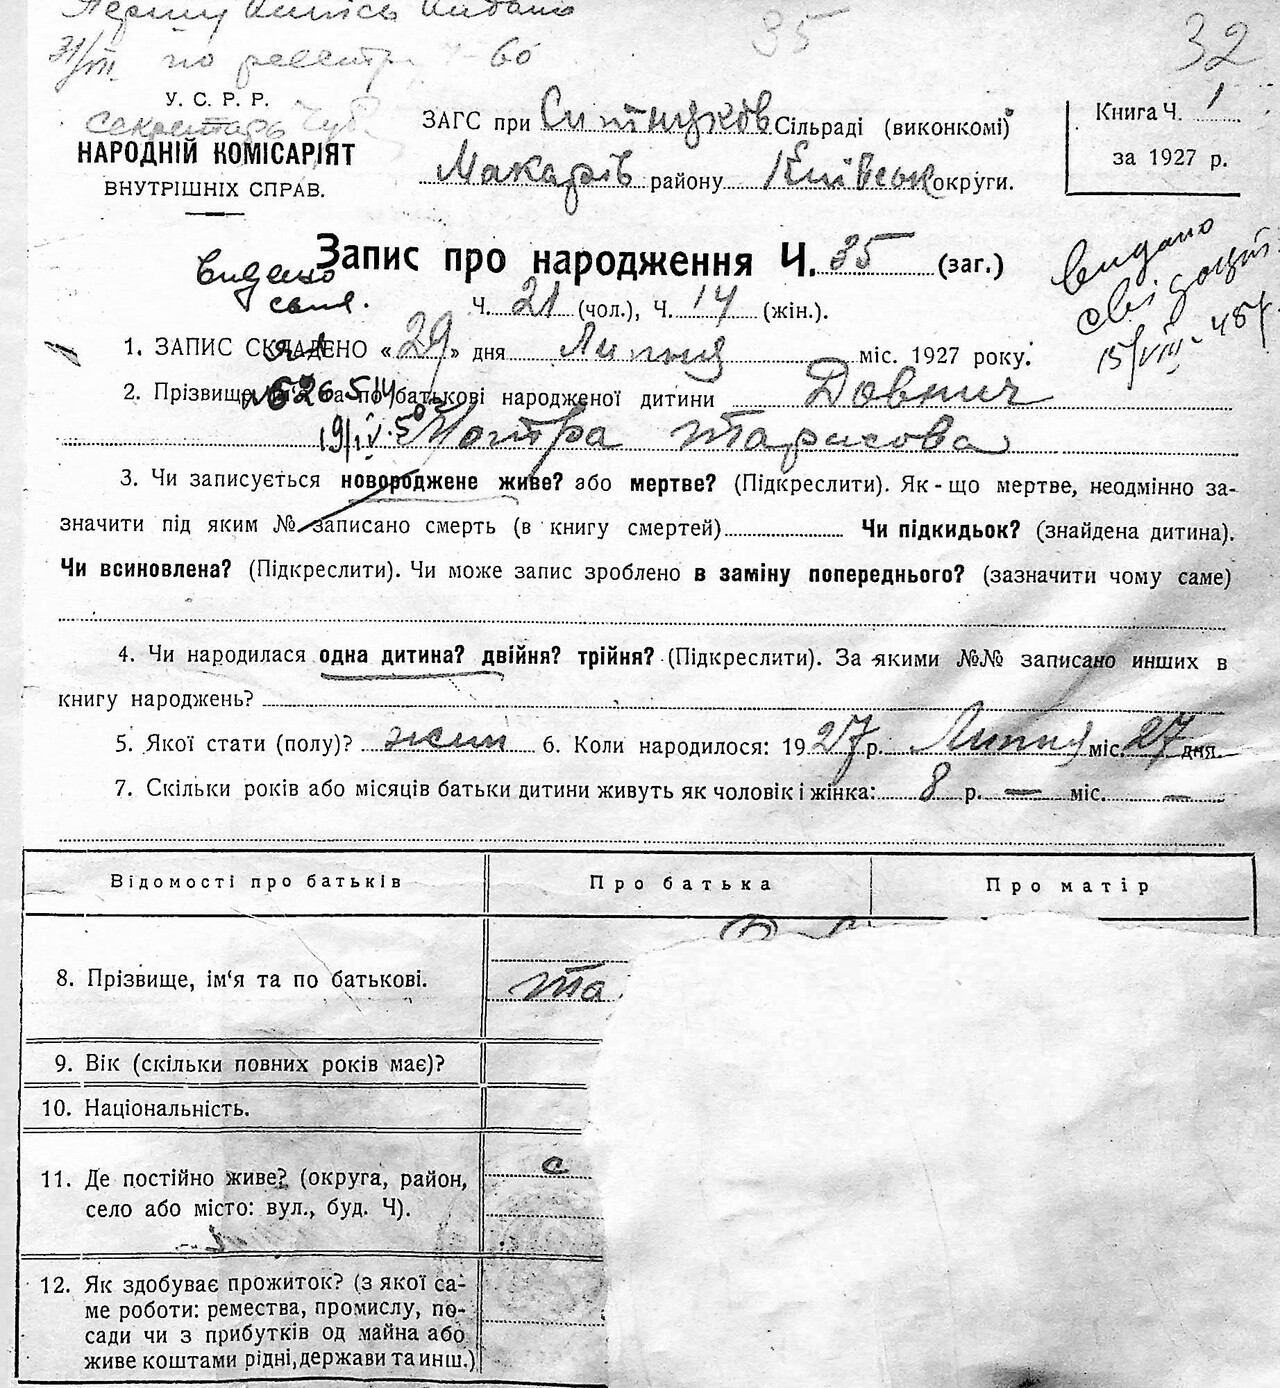 35
32
31/VII по реєстру Ч-60
У. С. Р. Р.
Секретарь
НАРОДНІЙ КОМІСАРІЯТ
ВНУТРІШНІХ СПРАВ.
ЗАГС при Ситняков Сільраді (виконкомі)
Макарів району Київськ округи.
Книга Ч. 1
за 1927 р.
Запис про народження Ч. 35 (заг.)
Ч. 21 (чол.), Ч. 14 (жін.).
видано
свід.
19/IV.50
видано
свідоцтв
15/VIII-45р
1. ЗАПИС СКЛАДЕНО «29» дня Липня міс. 1927 року.
2. Прізвище, ім'я та по батькові народженої дитини Довнич
Мотря Тарасова
3. Чи записується новороджене живе? або мертве? (Підкреслити). Як-що мертве, неодмінно за-
значити під яким № записано смерть (в книгу смертей) Чи підкидьок? (знайдена дитина).
Чи всиновлена? (Підкреслити). Чи може запис зроблено в заміну попереднього? (зазначити чому саме)
4. Чи народилася одна дитина? двійня? трійня? (Підкреслити). За якими №№ записано инших в
книгу народжень?
5. Якої стати (полу)? жін 6. Коли народилося: 1927 р. Липня міс. 27 дня.
7. Скільки років або місяців батьки дитини живуть як чоловік і жінка: 8 р. — міс. —
Відомості про батьків Про батька Про матір
8. Прізвище, ім'я та по батькові. Та
9. Вік (скільки повних років має)?
10. Національність.
11. Де постійно живе? (округа, район, с
село або місто: вул., буд. Ч).
12. Як здобуває прожиток? (з якої са-
ме роботи: ремества, промислу, по-
сади чи з прибутків од майна або
живе коштами рідні, держави та инш.)